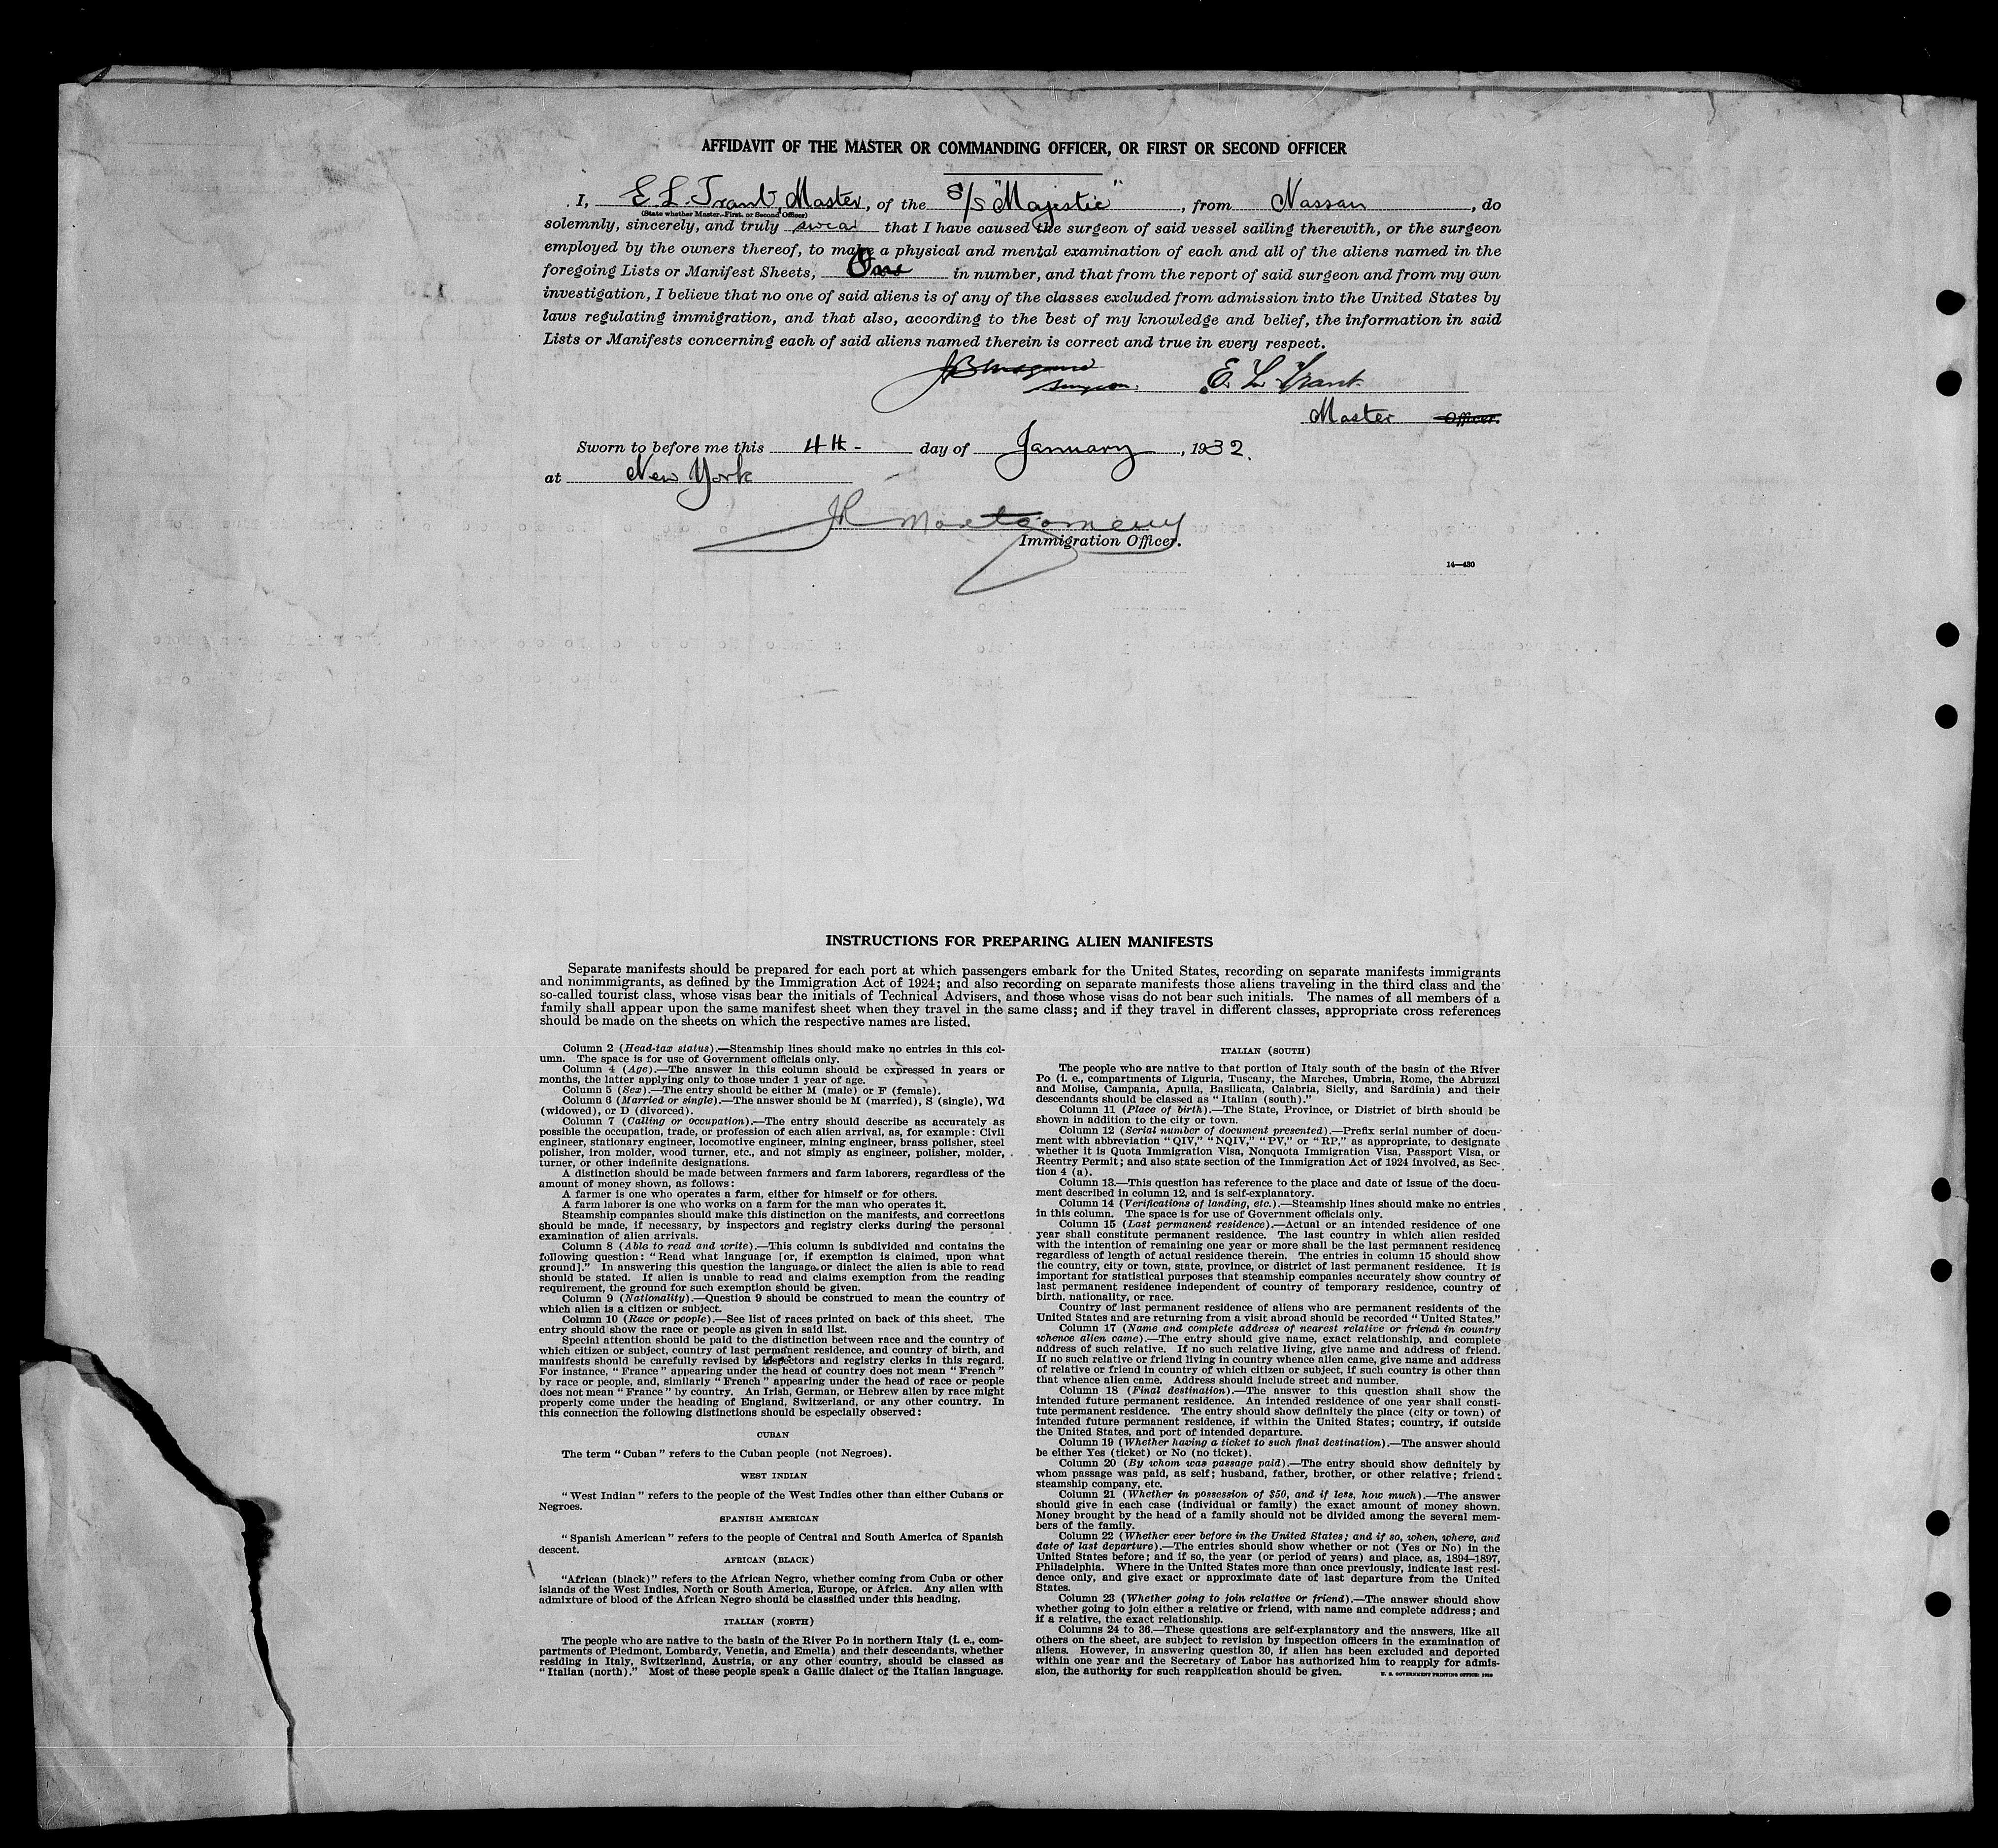 AFFIDAVIT OF THE MASTER OR COMMANDING OFFICER, OR FIRST OR SECOND OFFICER
I, E. L. Trant, Master, of the S/S "Majestic", from Nassau, do
(State whether Master, First, or Second Officer)
solemnly, sincerely, and truly swear that I have caused the surgeon of said vessel sailing therewith, or the surgeon
employed by the owners thereof, to make a physical and mental examination of each and all of the aliens named in the
foregoing Lists or Manifest Sheets, One in number, and that from the report of said surgeon and from my own
investigation, I believe that no one of said aliens is of any of the classes excluded from admission into the United States by
laws regulating immigration, and that also, according to the best of my knowledge and belief, the information in said
Lists or Manifests concerning each of said aliens named therein is correct and true in every respect.
Surgeon. E. L. Trant
Master Officer.
Sworn to before me this 4th - day of January, 1932.
at New York
Montgomery
Immigration Officer.
14—430
INSTRUCTIONS FOR PREPARING ALIEN MANIFESTS
Separate manifests should be prepared for each port at which passengers embark for the United States, recording on separate manifests immigrants
and nonimmigrants, as defined by the Immigration Act of 1924; and also recording on separate manifests those aliens traveling in the third class and the
so-called tourist class, whose visas bear the initials of Technical Advisers, and those whose visas do not bear such initials. The names of all members of a
family shall appear upon the same manifest sheet when they travel in the same class; and if they travel in different classes, appropriate cross references
should be made on the sheets on which the respective names are listed.
Column 2 (Head-tax status).—Steamship lines should make no entries in this col-
umn. The space is for use of Government officials only.
Column 4 (Age).—The answer in this column should be expressed in years or
months, the latter applying only to those under 1 year of age.
Column 5 (Sex).—The entry should be either M (male) or F (female).
Column 6 (Married or single).—The answer should be M (married), S (single), Wd
(widowed), or D (divorced).
Column 7 (Calling or occupation).—The entry should describe as accurately as
possible the occupation, trade, or profession of each alien arrival, as, for example: Civil
engineer, stationary engineer, locomotive engineer, mining engineer, brass polisher, steel
polisher, iron molder, wood turner, etc., and not simply as engineer, polisher, molder,
turner, or other indefinite designations.
A distinction should be made between farmers and farm laborers, regardless of the
amount of money shown, as follows:
A farmer is one who operates a farm, either for himself or for others.
A farm laborer is one who works on a farm for the man who operates it.
Steamship companies should make this distinction on the manifests, and corrections
should be made, if necessary, by inspectors and registry clerks during the personal
examination of alien arrivals.
Column 8 (Able to read and write).—This column is subdivided and contains the
following question: "Read what language [or, if exemption is claimed, upon what
ground]." In answering this question the language or dialect the alien is able to read
should be stated. If alien is unable to read and claims exemption from the reading
requirement, the ground for such exemption should be given.
Column 9 (Nationality).—Question 9 should be construed to mean the country of
which alien is a citizen or subject.
Column 10 (Race or people).—See list of races printed on back of this sheet. The
entry should show the race or people as given in said list.
Special attention should be paid to the distinction between race and the country of
which citizen or subject, country of last permanent residence, and country of birth, and
manifests should be carefully revised by inspectors and registry clerks in this regard.
For instance, "France" appearing under the head of country does not mean "French"
by race or people, and, similarly "French" appearing under the head of race or people
does not mean "France" by country. An Irish, German, or Hebrew alien by race might
properly come under the heading of England, Switzerland, or any other country. In
this connection the following distinctions should be especially observed:
CUBAN
The term "Cuban" refers to the Cuban people (not Negroes).
WEST INDIAN
"West Indian" refers to the people of the West Indies other than either Cubans or
Negroes.
SPANISH AMERICAN
"Spanish American" refers to the people of Central and South America of Spanish
descent.
AFRICAN (BLACK)
"African (black)" refers to the African Negro, whether coming from Cuba or other
islands of the West Indies, North or South America, Europe, or Africa. Any alien with
admixture of blood of the African Negro should be classified under this heading.
ITALIAN (NORTH)
The people who are native to the basin of the River Po in northern Italy (i. e., com-
partments of Piedmont, Lombardy, Venetia, and Emelia) and their descendants, whether
residing in Italy, Switzerland, Austria, or any other country, should be classed as
"Italian (north)." Most of these people speak a Gallic dialect of the Italian language.
ITALIAN (SOUTH)
The people who are native to that portion of Italy south of the basin of the River
Po (i. e., compartments of Liguria, Tuscany, the Marches, Umbria, Rome, the Abruzzi
and Molise, Campania, Apulia, Basilicata, Calabria, Sicily, and Sardinia) and their
descendants should be classed as "Italian (south)."
Column 11 (Place of birth).—The State, Province, or District of birth should be
shown in addition to the city or town.
Column 12 (Serial number of document presented).—Prefix serial number of docu-
ment with abbreviation "QIV," "NQIV," "PV," or "RP," as appropriate, to designate
whether it is Quota Immigration Visa, Nonquota Immigration Visa, Passport Visa, or
Reentry Permit; and also state section of the Immigration Act of 1924 involved, as Sec-
tion 4 (a).
Column 13.—This question has reference to the place and date of issue of the docu-
ment described in column 12, and is self-explanatory.
Column 14 (Verifications of landing, etc.).—Steamship lines should make no entries
in this column. The space is for use of Government officials only.
Column 15 (Last permanent residence).—Actual or an intended residence of one
year shall constitute permanent residence. The last country in which alien resided
with the intention of remaining one year or more shall be the last permanent residence
regardless of length of actual residence therein. The entries in column 15 should show
the country, city or town, state, province, or district of last permanent residence. It is
important for statistical purposes that steamship companies accurately show country of
last permanent residence independent of country of temporary residence, country of
birth, nationality, or race.
Country of last permanent residence of aliens who are permanent residents of the
United States and are returning from a visit abroad should be recorded "United States."
Column 17 (Name and complete address of nearest relative or friend in country
whence alien came).—The entry should give name, exact relationship, and complete
address of such relative. If no such relative living, give name and address of friend.
If no such relative or friend living in country whence alien came, give name and address
of relative or friend in country of which citizen or subject, if such country is other than
that whence alien came. Address should include street and number.
Column 18 (Final destination).—The answer to this question shall show the
intended future permanent residence. An intended residence of one year shall consti-
tute permanent residence. The entry should show definitely the place (city or town) of
intended future permanent residence, if within the United States; country, if outside
the United States, and port of intended departure.
Column 19 (Whether having a ticket to such final destination).—The answer should
be either Yes (ticket) or No (no ticket).
Column 20 (By whom was passage paid).—The entry should show definitely by
whom passage was paid, as self; husband, father, brother, or other relative; friend;
steamship company, etc.
Column 21 (Whether in possession of $50, and if less, how much).—The answer
should give in each case (individual or family) the exact amount of money shown.
Money brought by the head of a family should not be divided among the several mem-
bers of the family.
Column 22 (Whether ever before in the United States; and if so, when, where, and
date of last departure).—The entries should show whether or not (Yes or No) in the
United States before; and if so, the year (or period of years) and place, as, 1894–1897,
Philadelphia. Where in the United States more than once previously, indicate last resi-
dence only, and give exact or approximate date of last departure from the United
States.
Column 23 (Whether going to join relative or friend).—The answer should show
whether going to join either a relative or friend, with name and complete address; and
if a relative, the exact relationship.
Columns 24 to 36.—These questions are self-explanatory and the answers, like all
others on the sheet, are subject to revision by inspection officers in the examination of
aliens. However, in answering question 30, if alien has been excluded and deported
within one year and the Secretary of Labor has authorized him to reapply for admis-
sion, the authority for such reapplication should be given.
U. S. GOVERNMENT PRINTING OFFICE: